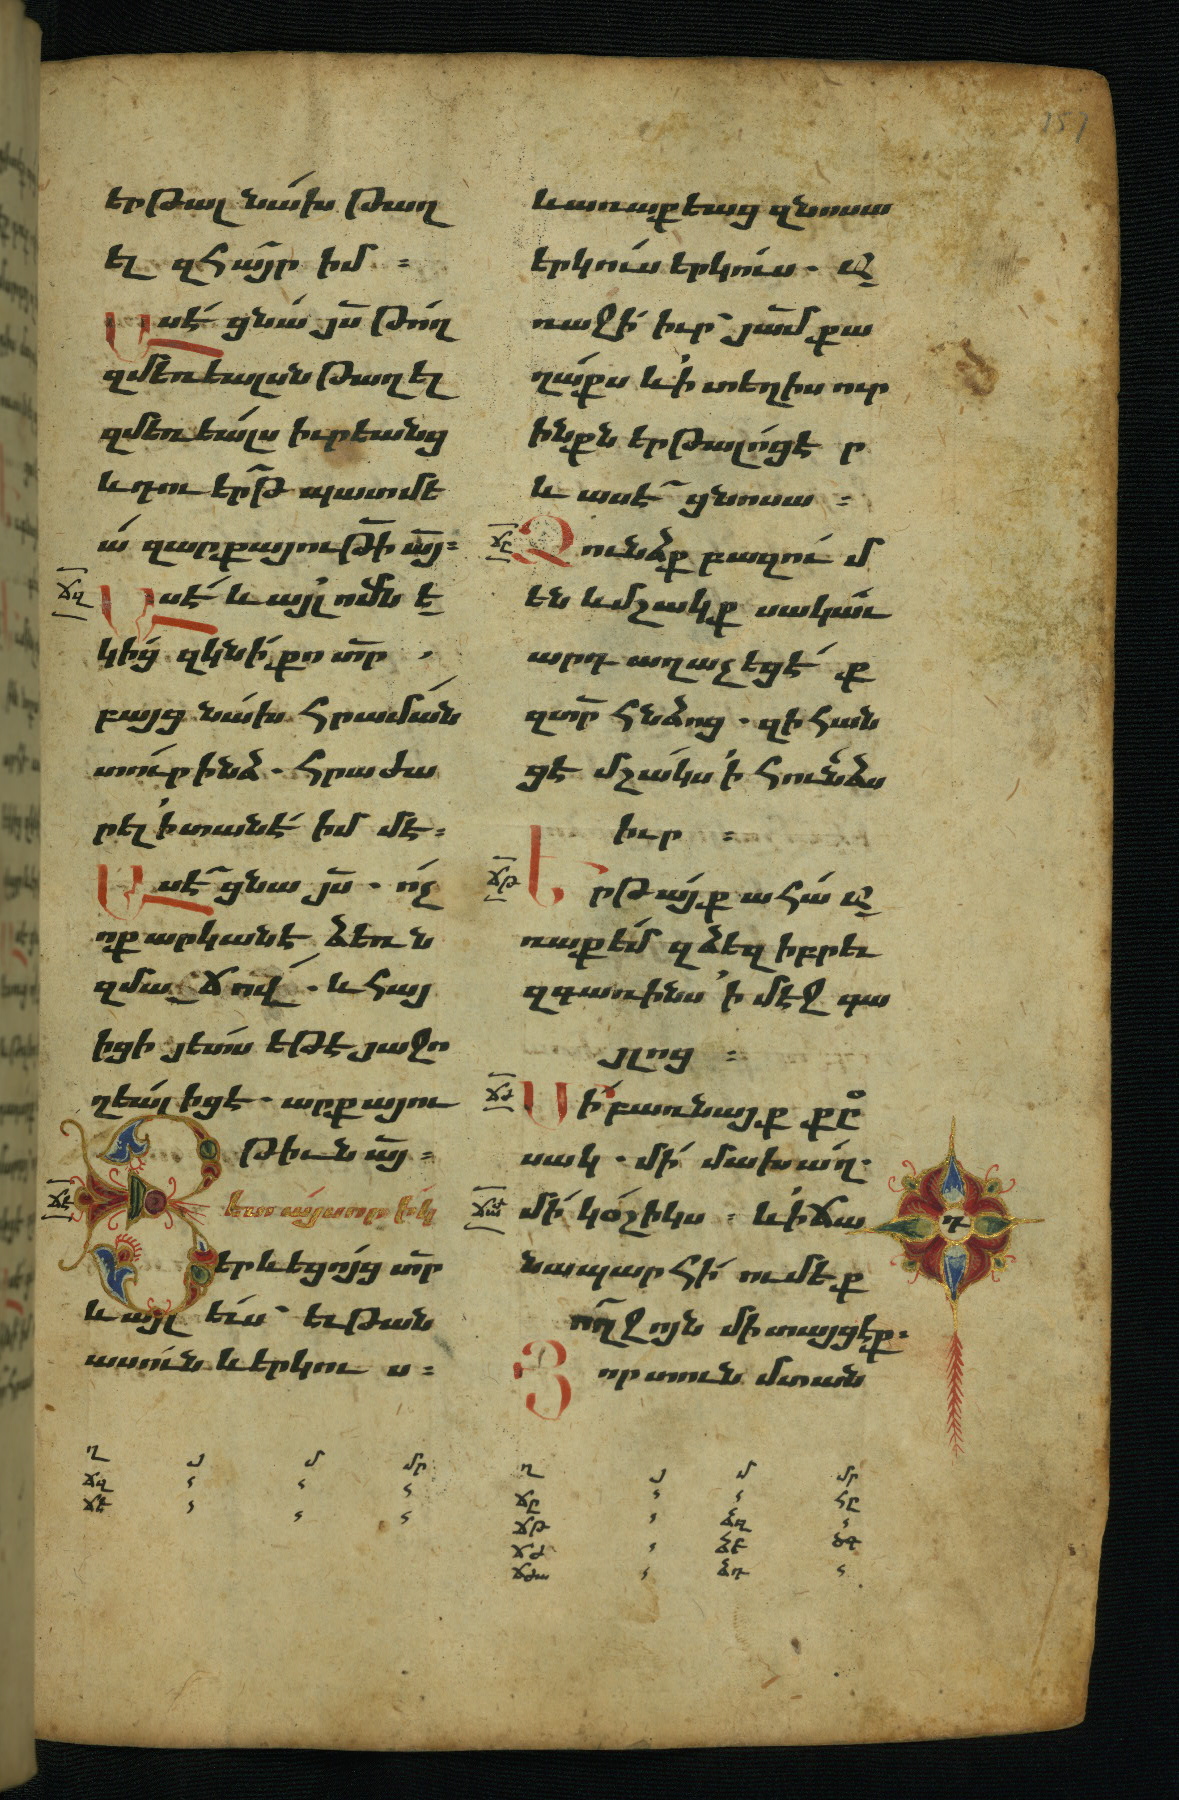 157
երթալ նախ թաղ
ել զհայր իմ ։
Ասէ ցնա յս թող
զմեռեալսն թաղել
զմեռեալս իւրեանց
և դու երթ պատմե
ա զարքայութի այ։
ճզ Ասէ և այլ ոմն ե
կից զկնի քո տր .
բայց նախ հրաման
տուր ինձ . հրաժա
րել ՚ի տանէ իմ մէ։
Ասէ ցնա յս . ոչ
ոք արկանէ ձեռն
զմաճով . և հայ
իցի յետս եթէ յաջո
ղեալ իցէ . արքայու
թիւն այ ։
ճէ Յետ այսորիկ
երևեցոյց տր
և այլ ևս եւթան
ասուն և երկուս ։
և առաքեաց զնոսա
երկուս երկուս . ա
ռաջի իւր յամ քա
ղաքս և ՚ի տեղիս ուր
ինքն երթալոցէր
և ասէ ցնոսա ։
ճը Հունձք բազում
են և մշակք սակաւ
արդ աղաչեցէք
զտր հնձոց . զի հան
ցէ մշակս ՚ի հունձս
իւր ։
ճթ Երթայք ահա ա
ռաքեմ զձեզ իբրեւ
զգառինս ՚ի մէջ գա
յլոց ։
ճժ Մի բառնայք քը
սակ . մի մախաղ .
ճժա մի կօշիկս ։ և ՚ի ճա
դ
նապարհի ումեք
ողջոյն մի տայցէք։
Յոր տուն մտան
ղ յ մ մր
ճզ
ճէ
ղ յ մ մր
ճը հը
ճթ ձզ
ճժ ձէ ծգ
ճժա ձդ